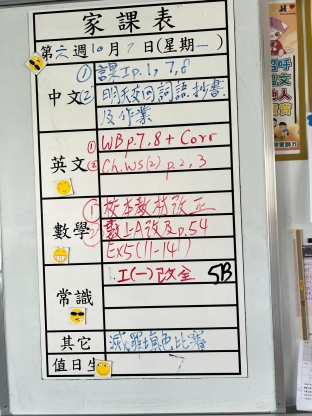 家課表
第六週10月7日(星期一)
中文
① 課Ip.1,7,8
② 明天交回詞語,抄書
及作業
英文
① WBp.7,8 + Corr
② Ch.WS(2) p.2,3
數學
① 校本教材改正
② 數上A改及p.54
Ex5(11-14)
常識
1. 工(一)改全
5B
其它
滅罪填色比賽
值日生
7